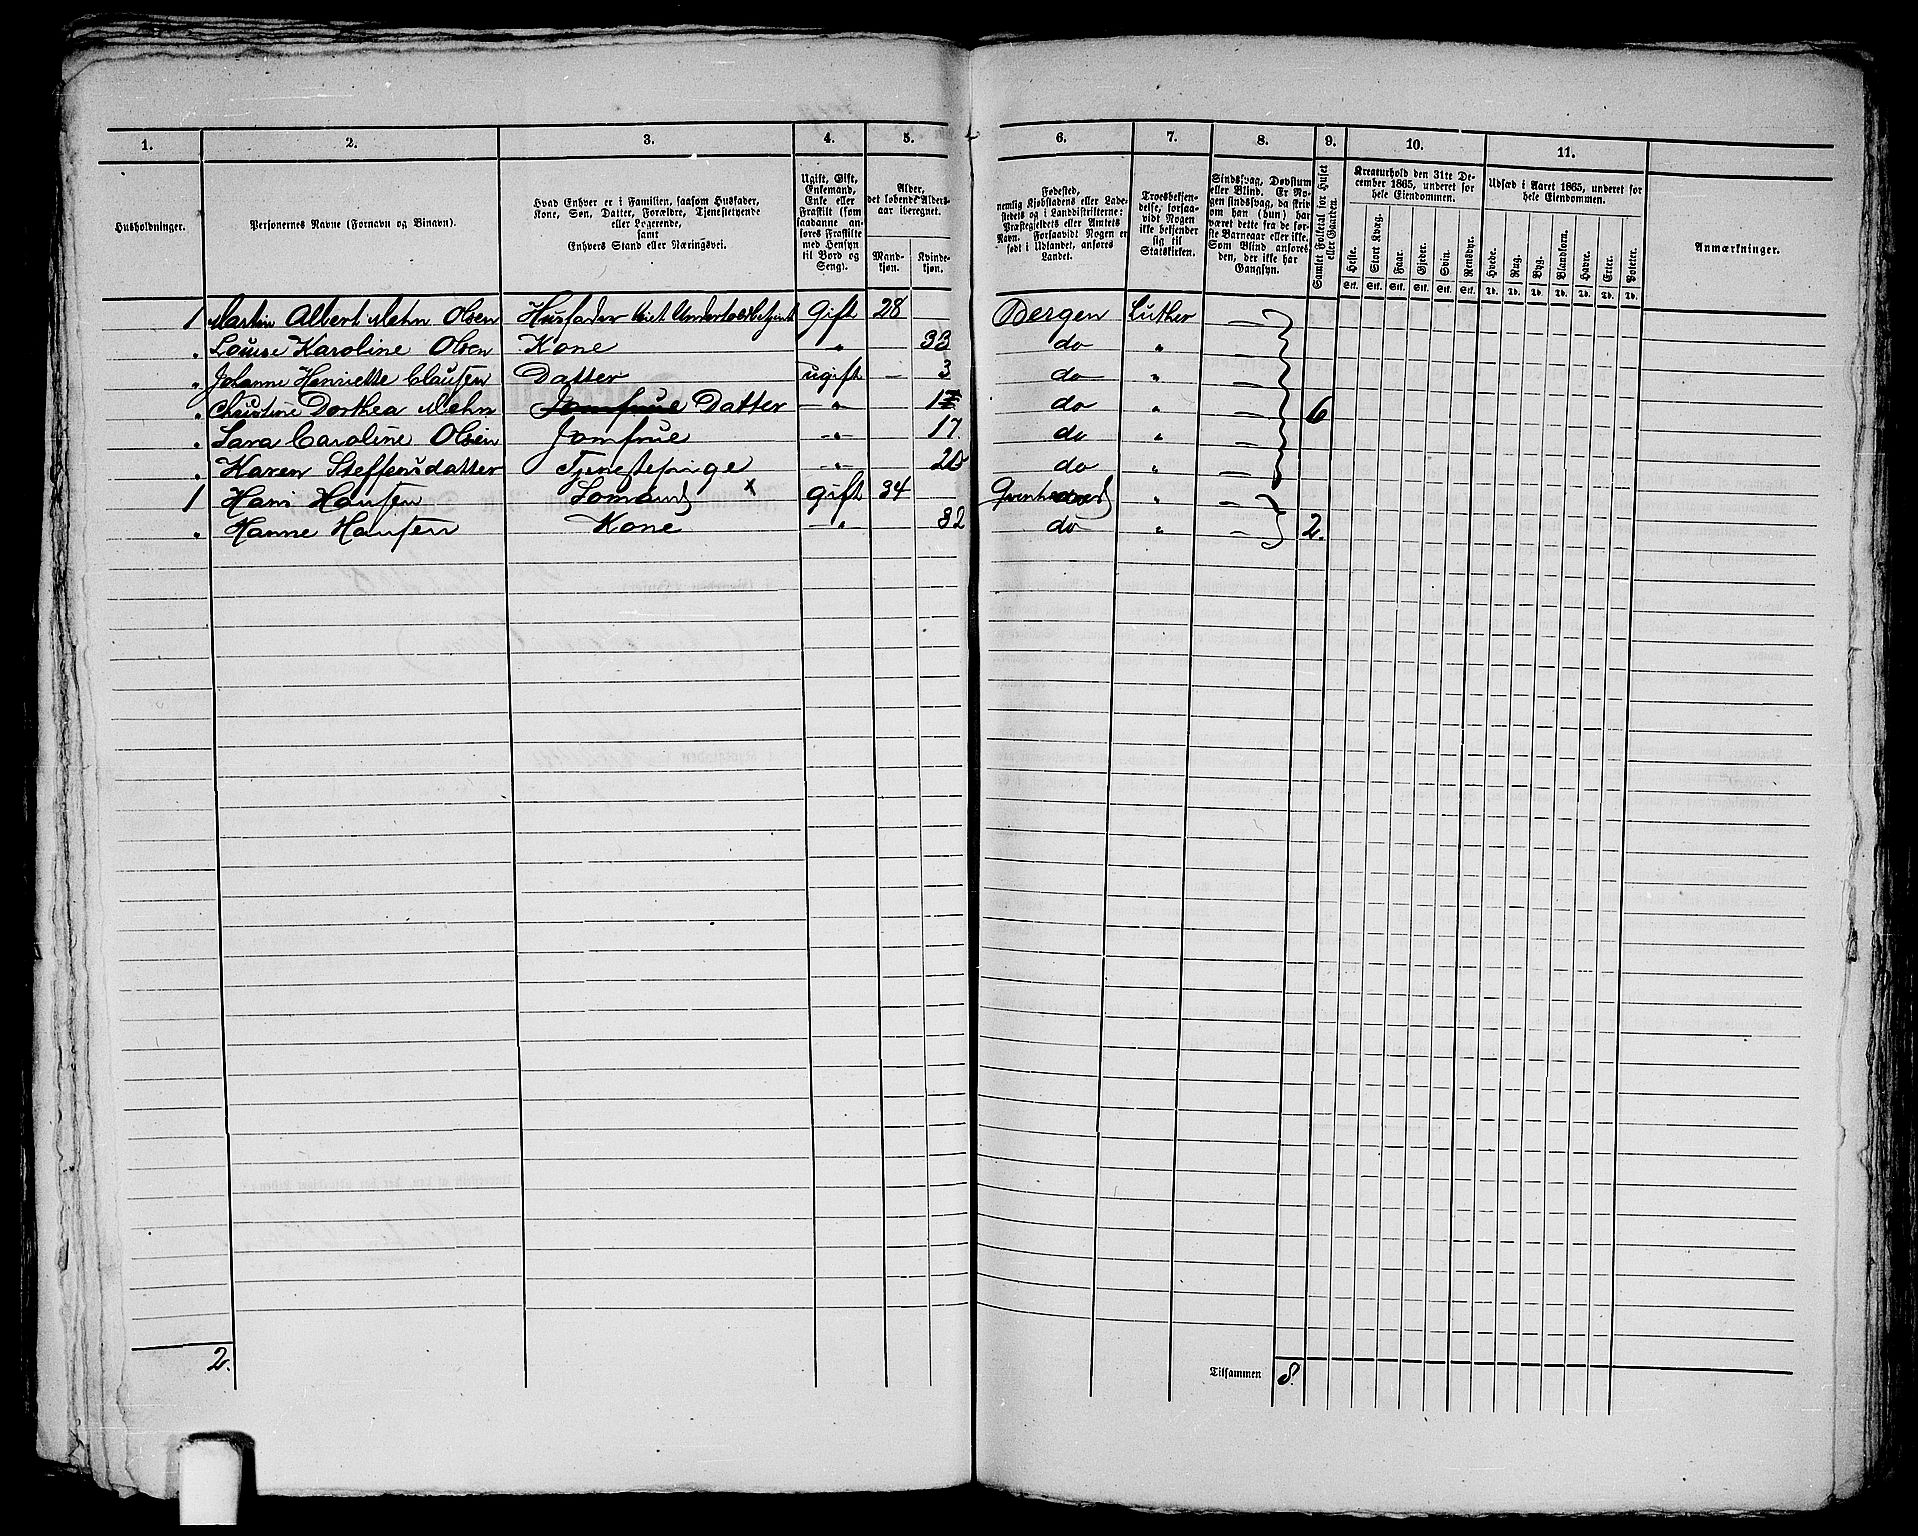 1. 2. 3. 4. 5. 6. 7. 8. 9. 10. 11.
Husholdninger.
Personernes Navne (Fornavn og Binavn).
Hvad Enhver er i Familien, saasom Husfader,
Kone, Søn, Datter, Forældre, Tjenestetyende
eller Logerende,
samt
Enhvers Stand eller Næringsvei.
Ugift, Gift,
Enkemand,
Enke eller
Fraskilt (som
saadanne an-
føres Fraskilte
med Hensyn
til Bord og
Seng).
Alder,
det løbende Alders-
aar iberegnet.
Mand-
kjøn.
Kvinde-
kjøn.
Fødested,
nemlig Kjøbstadens eller Lade-
stedets og i Landdistrikterne:
Præstegjeldets eller Amtets
Navn. Forsaavidt Nogen er
født i Udlandet, anføres
Landet.
Troesbekjen-
delse, forsaa-
vidt Nogen
ikke bekjender
sig til
Statskirken.
Sindssvag, Døvstum
eller Blind. Er No-
gen sindssvag, da skriv
om han (hun) har
været dette fra de før-
ste Barneaar eller ikke.
Som Blind anføres
den, der ikke har
Gangsyn.
Samlet Folketal for Huset
eller Gaarden.
Kreaturhold den 31te De-
cember 1865, underet for
hele Eiendommen.
Heste. Stort Kvæg. Faar. Gjeder. Svin. Rensdyr.
Stk. Stk. Stk. Stk. Stk. Stk.
Udsæd i Aaret 1865, underet for
hele Eiendommen.
Hvede. Rug. Byg. Blandkorn. Havre. Erter. Poteter.
Td. Td. Td. Td. Td. Td. Td.
Anmærkninger.
1 Martin Albert Mehn Olsen Husfader Gift 28 Bergen Luther —
" Louise Karoline Olsen Kone " 33 do " —
" Johanne Henriette Clausen Datter ugift — 3 do " —
" Christine Dorthea Mehn Jomfrue Datter —"— do " — 6
" Sara Caroline Olsen Jomfrue —"— 17 do " —
" Karen Steffensdatter Tjenestepige —"— do " —
1 Hans Hansen x Gift 34 " —
" Hanne Hansen Kone —"— 32 do " — 2.
2. Tilsammen 8.